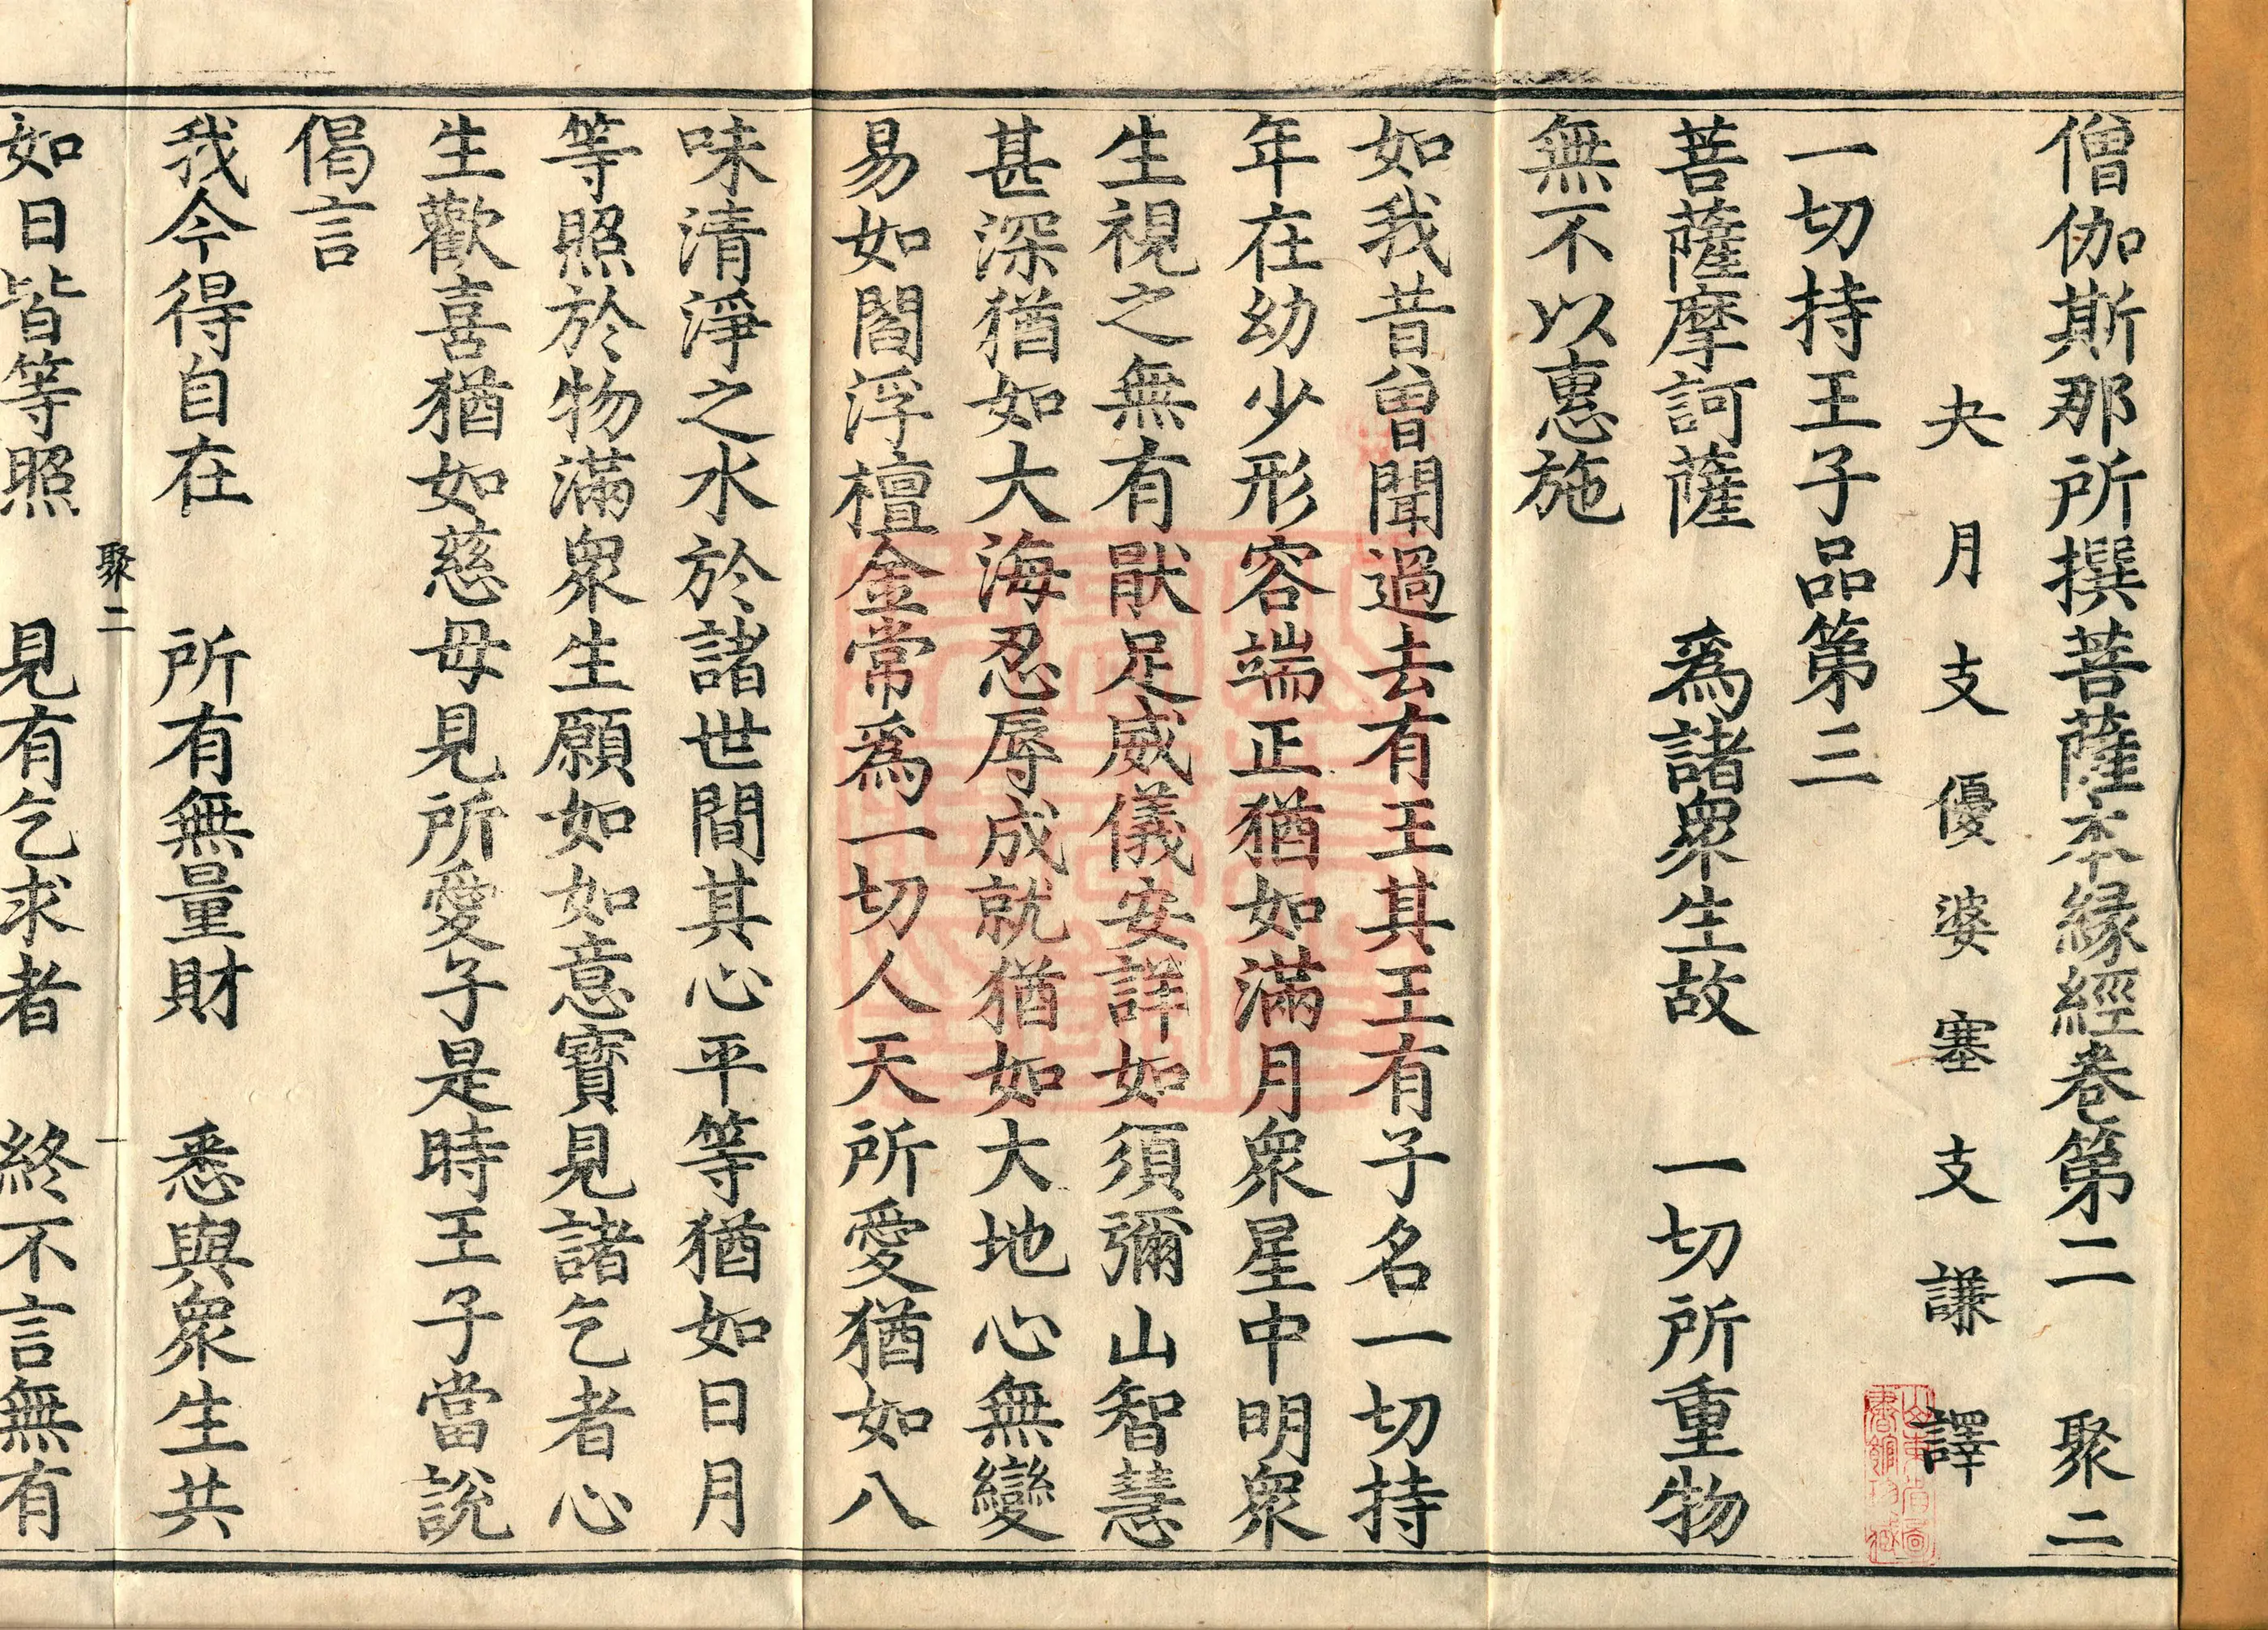 僧伽斯那所撰菩薩本緣經卷第二 聚二
夫月支優婆塞支謙譯
一切持王子品第三
菩薩摩訶薩 爲諸衆生故 一切所重物
無不以惠施
如我昔曾聞過去有王其王有子名一切持
年在幼少形容端正猶如滿月衆星中明衆
生視之無有厭足威儀安詳如須彌山智慧
甚深猶如大海忍辱成就猶如大地心無變
易如閻浮檀金常爲一切人天所愛猶如八
味清淨之水於諸世間其心平等猶如日月
等照於物滿衆生願如如意寳見諸乞者心
生歡喜猶如慈母見所愛子是時王子當說
偈言
我今得自在 所有無量財 悉與衆生共
聚二 一
如日皆等照 見有乞求者 終不言無有